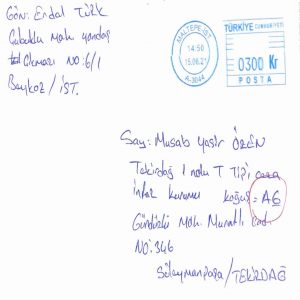 Gön: Erdal Türk
Çubuklu Mah. yandaş
Çıkmazı NO: 6/1
Beykoz / İST.
MALTEPE-İST
14:50
15.06.21
A-3044
TÜRKİYE CUMHURİYETİ
0300 Kr
POSTA
Say: Musab Yasir ÖZEN
Tekirdağ 1 nolu T Tipi ceza
infaz kurumu koğuş = A6
Gündüzlü Mah. Muratlı Cad.
NO: 346
Süleymanpaşa / TEKİRDAĞ